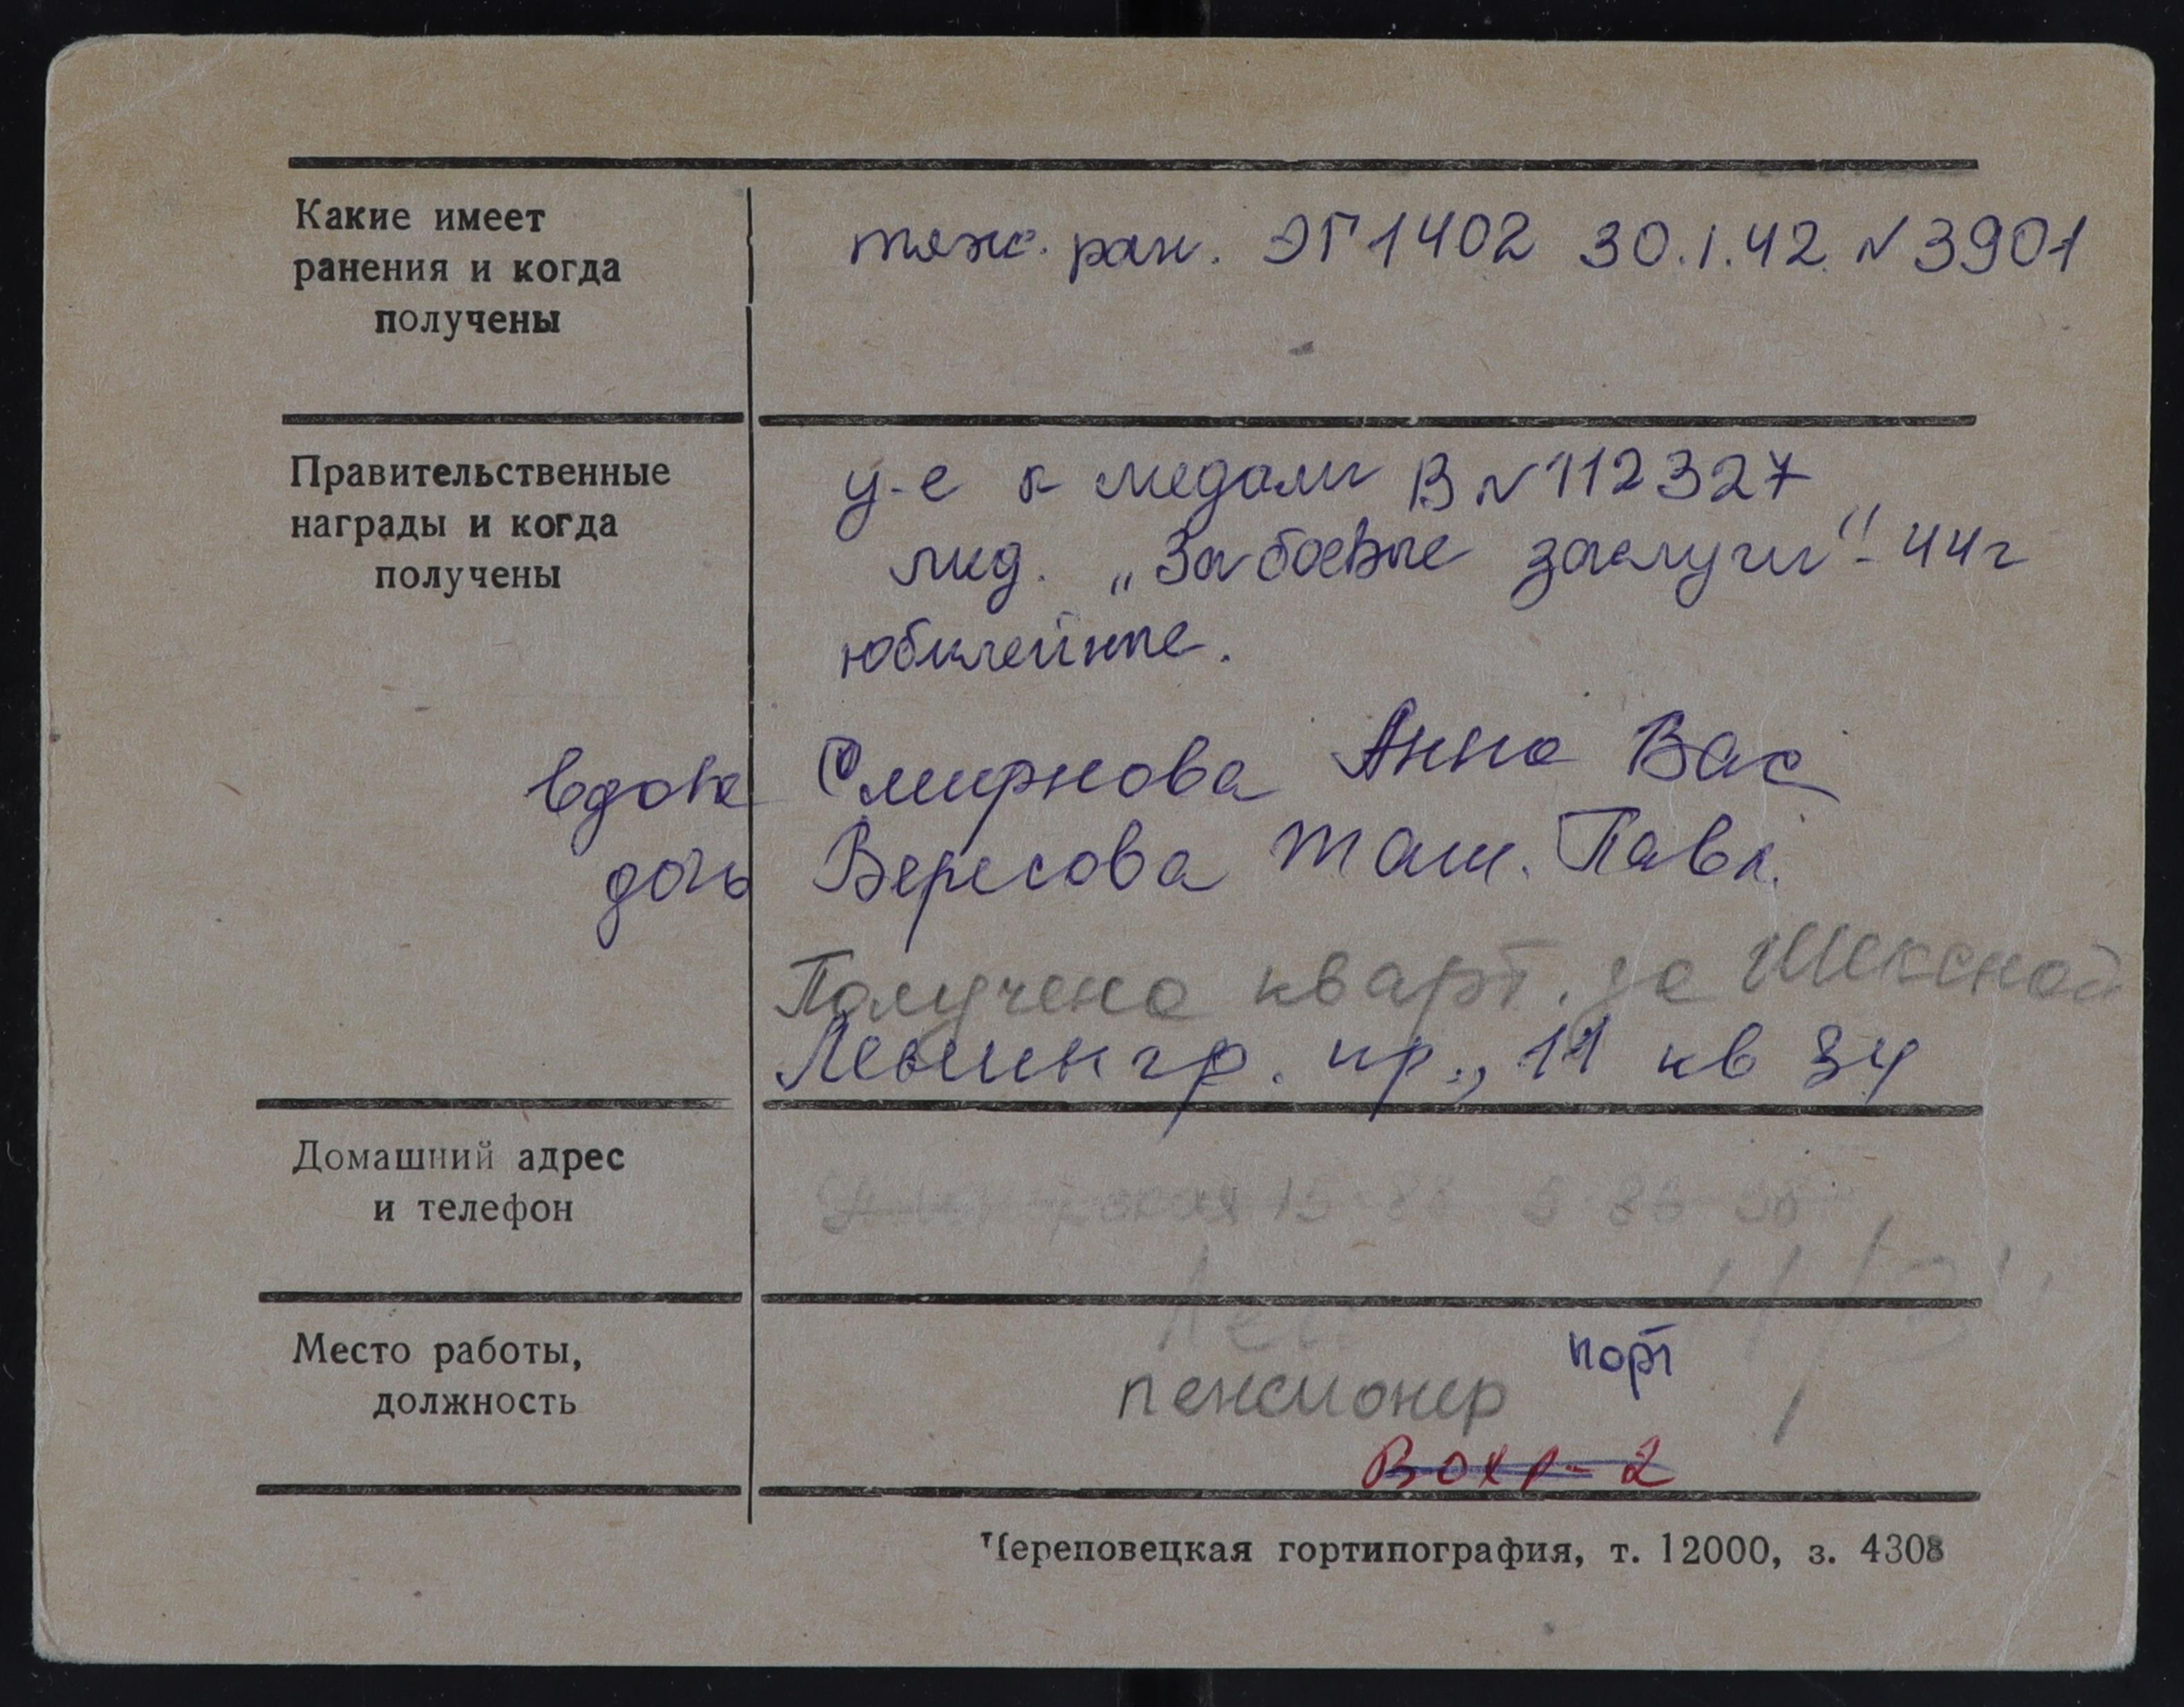 Какие имеет
ранения и когда
получены
тяж. ран. ЭГ 1402 30.1.42. N 3901
Правительственные
награды и когда
получены
у-е к медали В N 112327
мед. „За боевые заслуги" - 44 г
юбилейные.
вдова Смирнова Анна Вас
дочь Вересова Там. Павл.
Получена кварт. за Шексной
Ленингр. пр., 11 кв 34
Домашний адрес
и телефон
15
Место работы,
должность
порт
пенсионер
Вохр - 2
Череповецкая гортипография, т. 12000, з. 4308